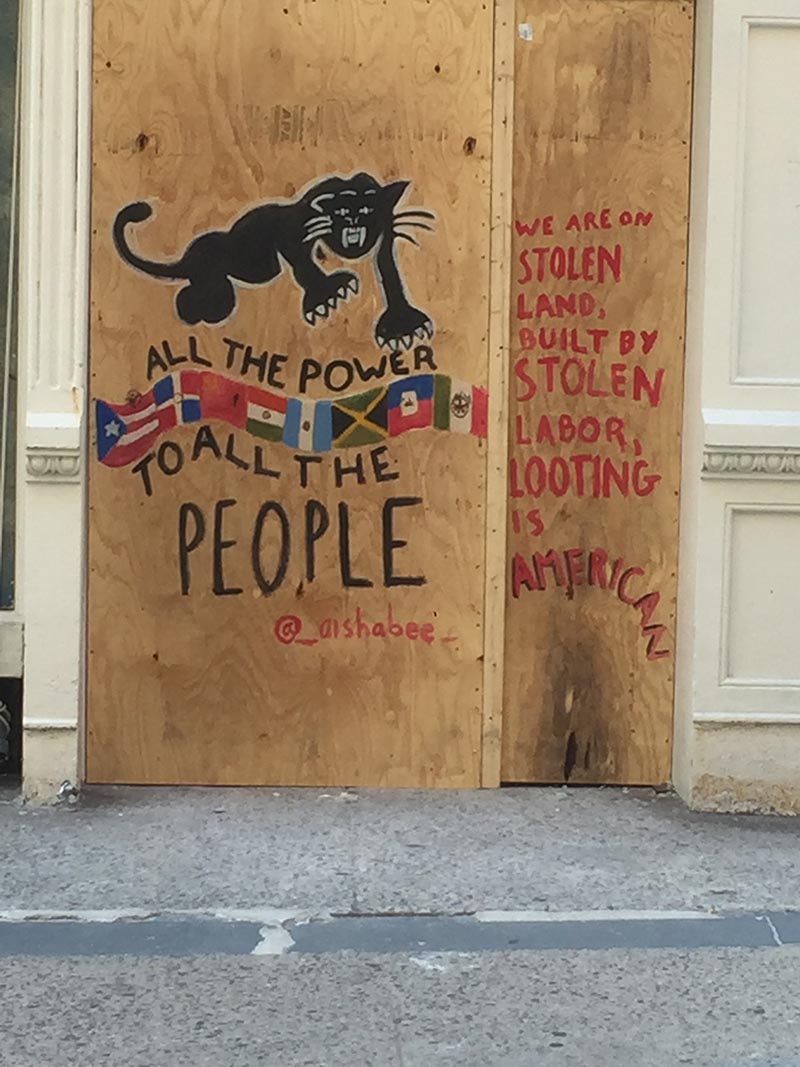 ALL THE POWER
TO ALL THE
PEOPLE
@_aishabee_
WE ARE ON
STOLEN
LAND,
BUILT BY
STOLEN
LABOR,
LOOTING
IS
AMERICAN